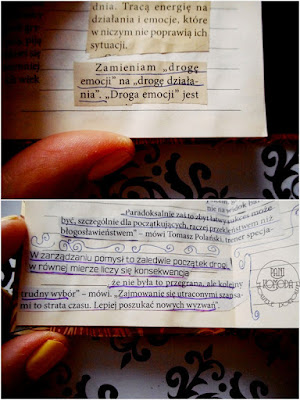 dnia. Tracą energię na
działania i emocje, które
w niczym nie poprawią ich
sytuacji.
Zamieniam „drogę
emocji” na „drogę działa-
nia”. „Droga emocji” jest
„Paradoksalnie zaś to zbyt łatwy sukces może
być, szczególnie dla początkujących, raczej przekleństwem niż
błogosławieństwem” – mówi Tomasz Polański, trener specja-
W zarządzaniu pomysł to zaledwie początek drogi,
w równej mierze liczy się konsekwencja
że nie była to przegrana, ale kolejny
trudny wybór” – mówi. „Zajmowanie się utraconymi szansa-
mi to strata czasu. Lepiej poszukać nowych wyzwań”.
KOMODA